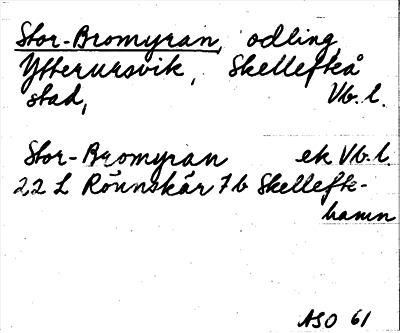 Stor-Bromyran, odling,
Ytterursvik, Skellefteå
stad, Vb. l.
Stor-Bromyran ek Vb. l.
22 L Rönnskär 7b Skellefte-
hamn
ASO 61